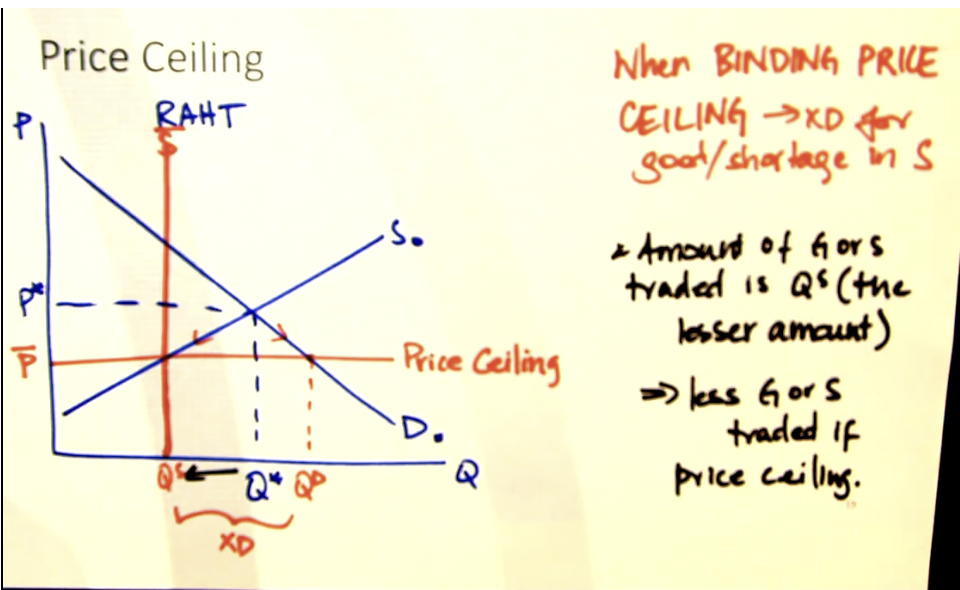 Price Ceiling
P
RAHT
S̅
S.
P*
P̅
Price Ceiling
D.
Qˢ
Q*
Qᴰ
Q
XD
When BINDING PRICE
CEILING → XD for
good/shortage in S
* Amount of G or S
traded is Qˢ (the
lesser amount)
⇒ less G or S
traded if
price ceiling.